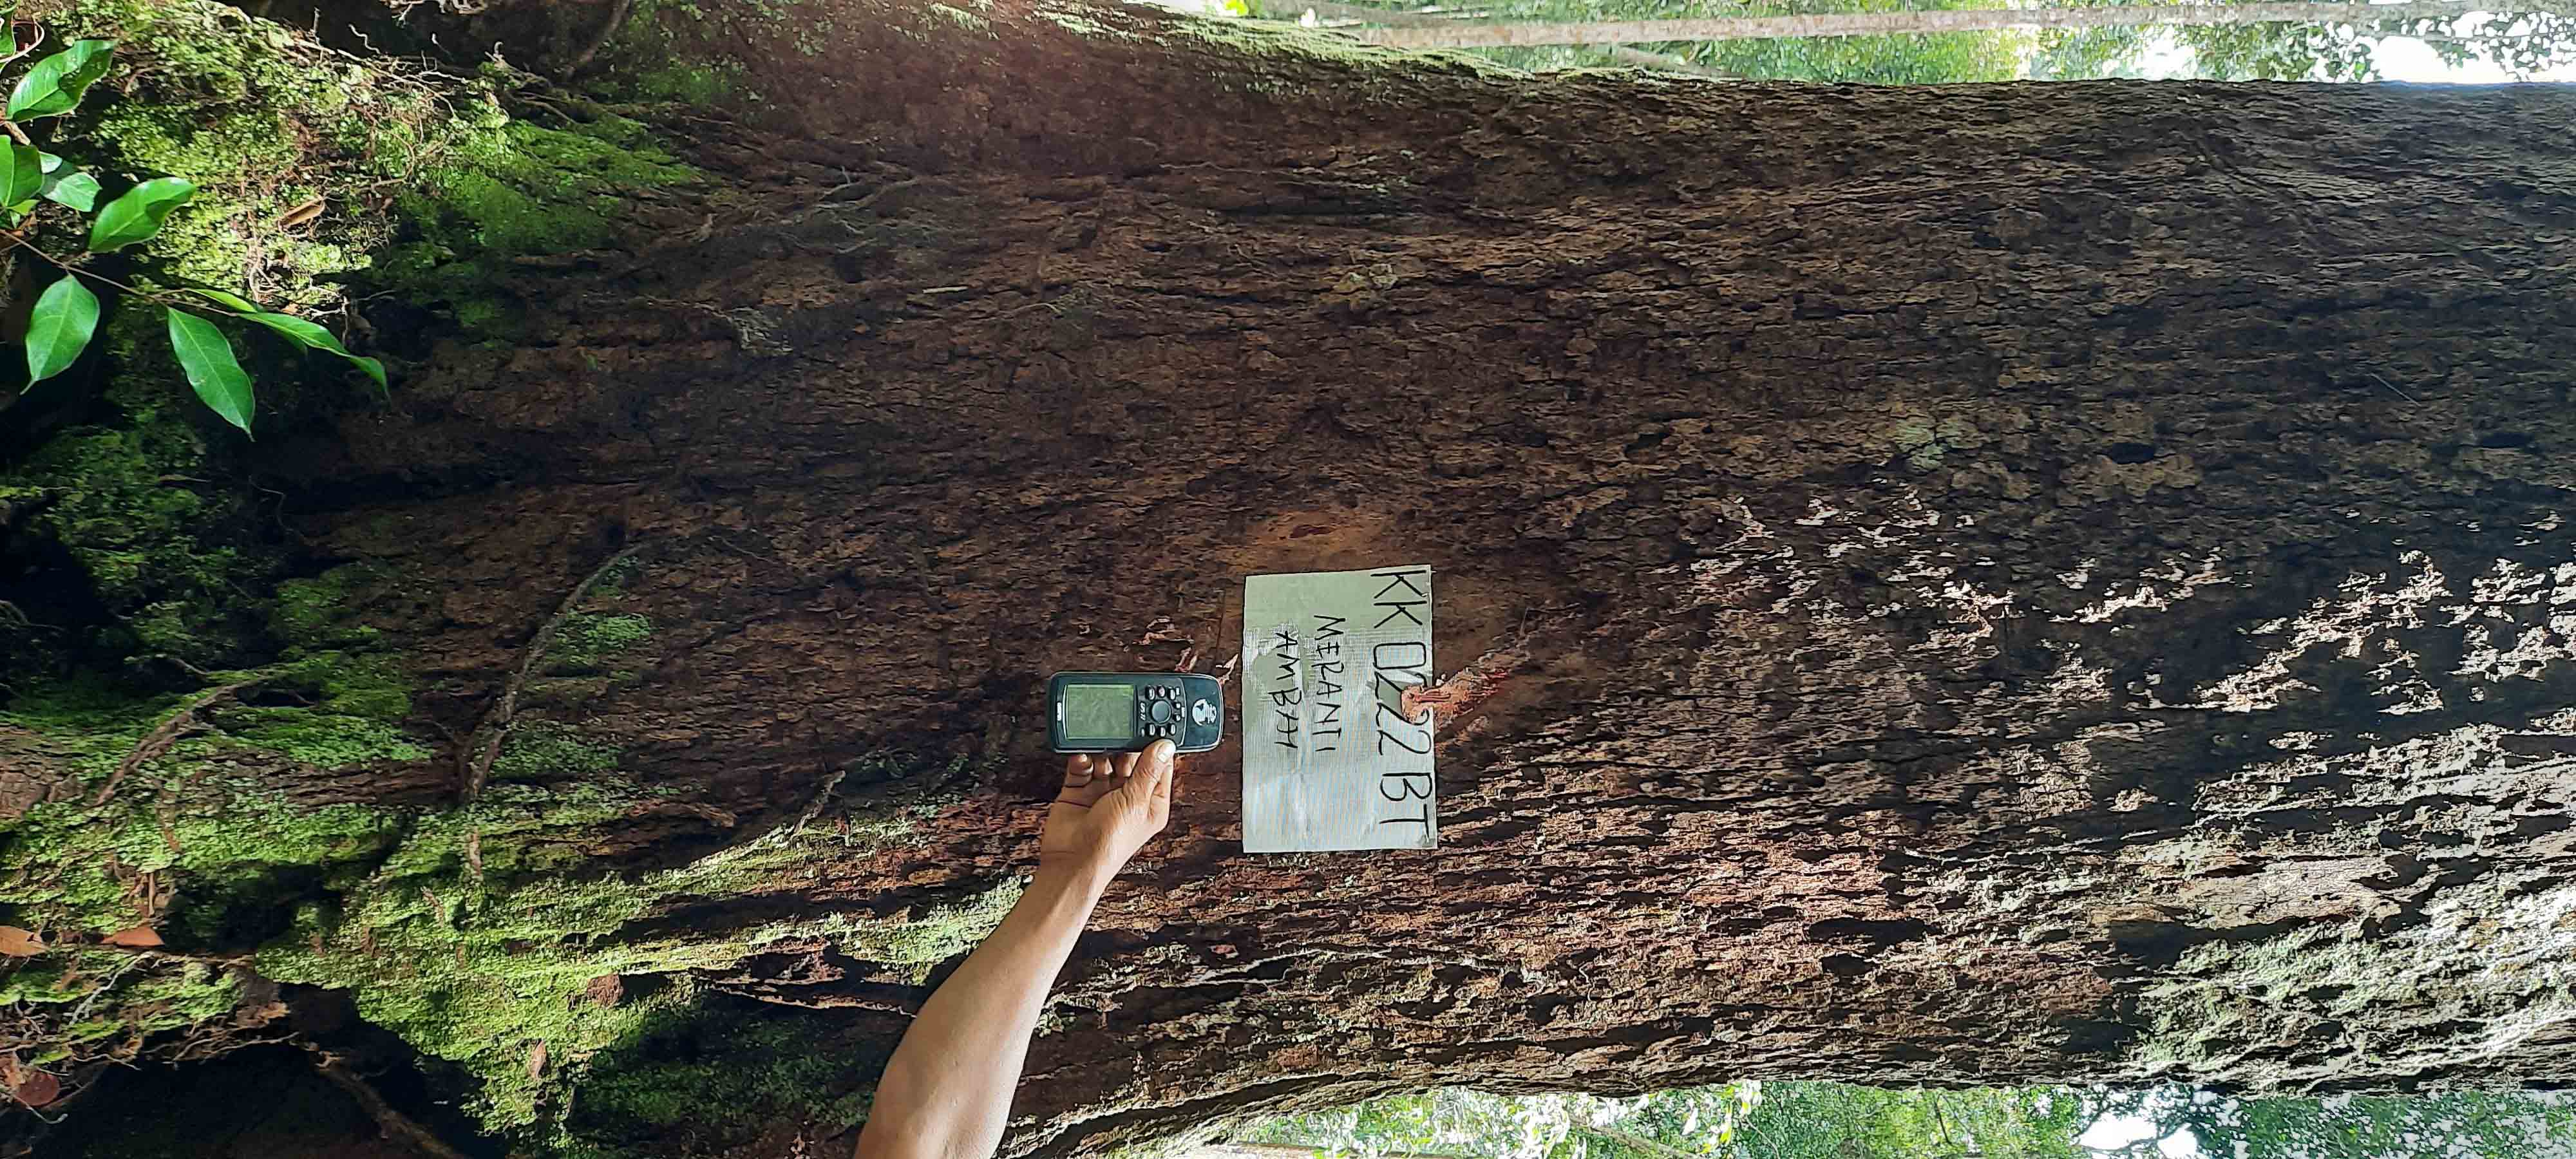 KK 0222 BT
MERANTI
AMBAH